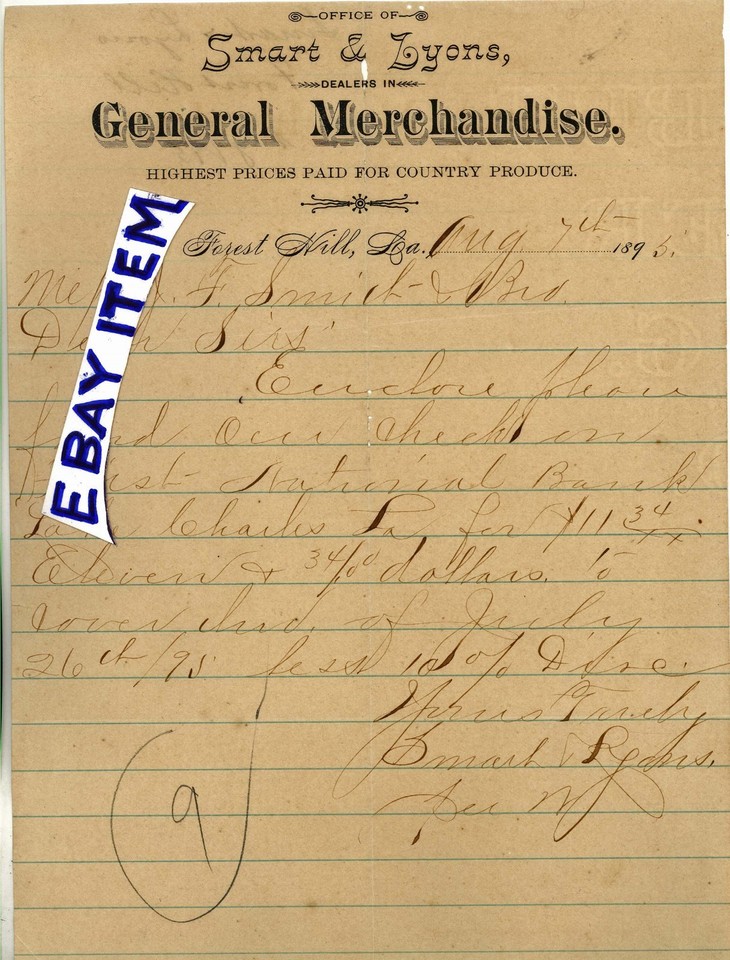 OFFICE OF
Smart & Lyons,
DEALERS IN
General Merchandise.
HIGHEST PRICES PAID FOR COUNTRY PRODUCE.
Forest Hill, La. Aug 7th 1895.
F. Smith & Bro.
Sirs
Enclose please
find our check on
First National Bank
Charles La for $11 34/xx.
Eleven & 34/00 dollars. to
cover Ind. of July
26th/95 less 10% Disc.
Yours Truly
Smart & Lyons.
Per M
9
EBAY ITEM